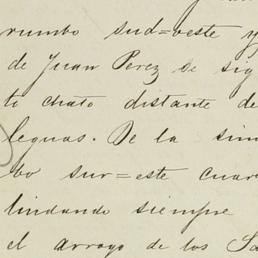 rumbo sud=oeste y
de Juan Perez se sig
ti chato distante de
leguas. De la sim
bo sur=este cuar
lindando siempre
el arroyo de los Sa